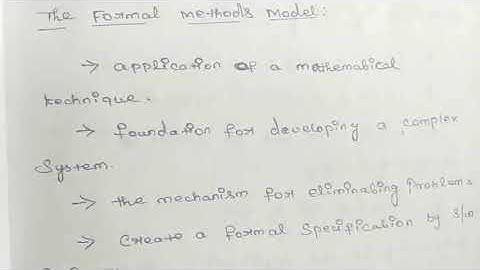 The Formal Methods Model:
→ application of a mathematical
technique.
→ foundation for developing a complex
System.
→ the mechanism for eliminating Problems
→ Create a formal specification by s/w